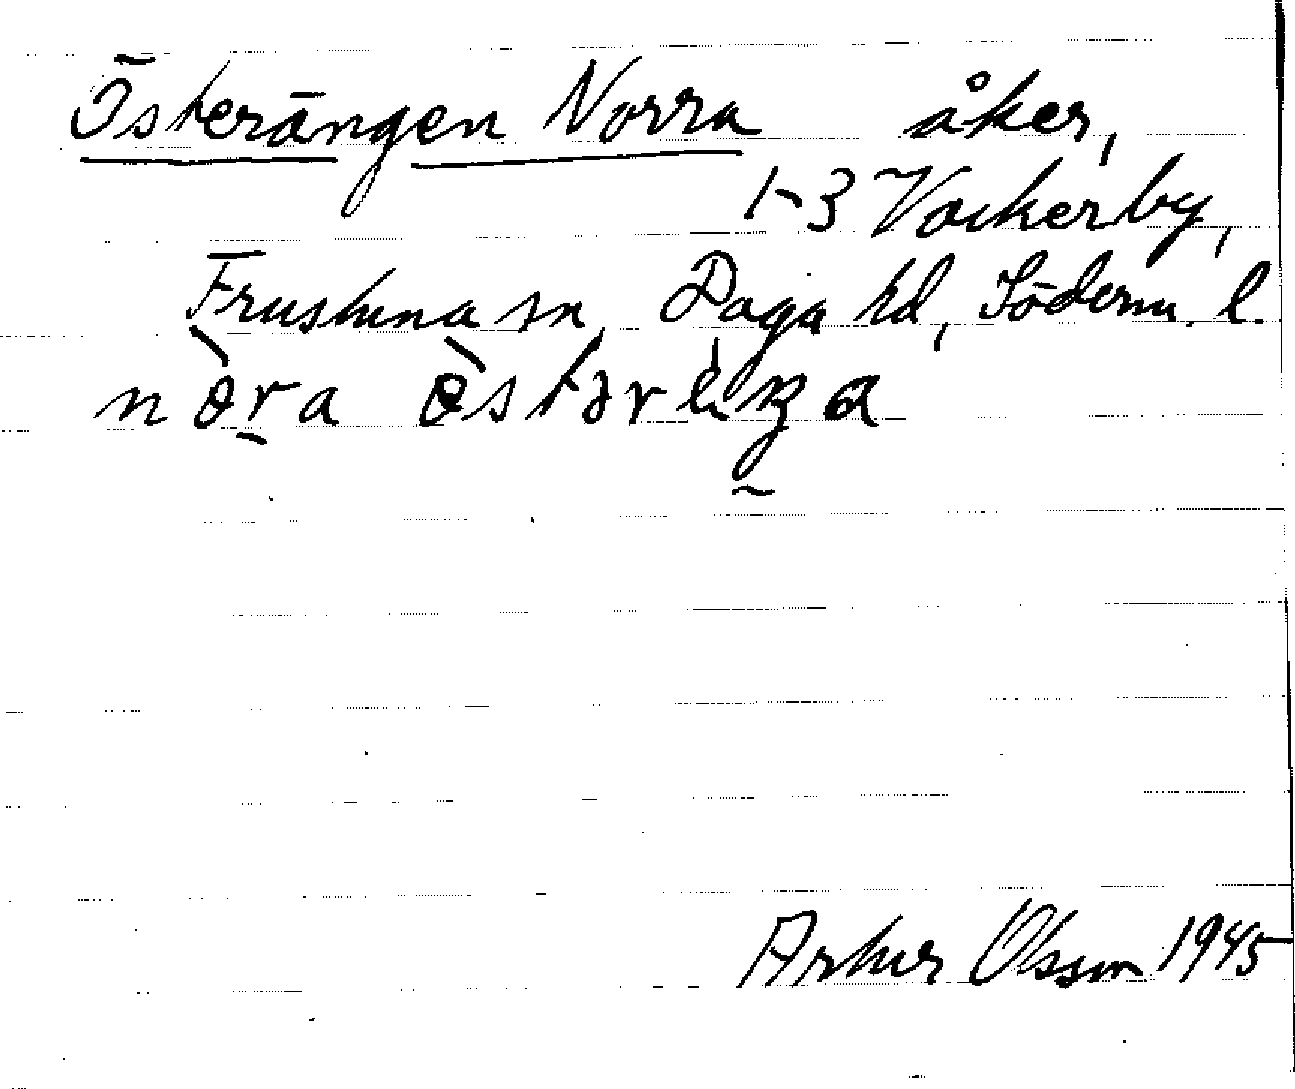 Österängen Norra åker,
1-3 Vackerby,
Frustuna sn, Daga hd, Söderm. l.
Arthur Olsson 1945